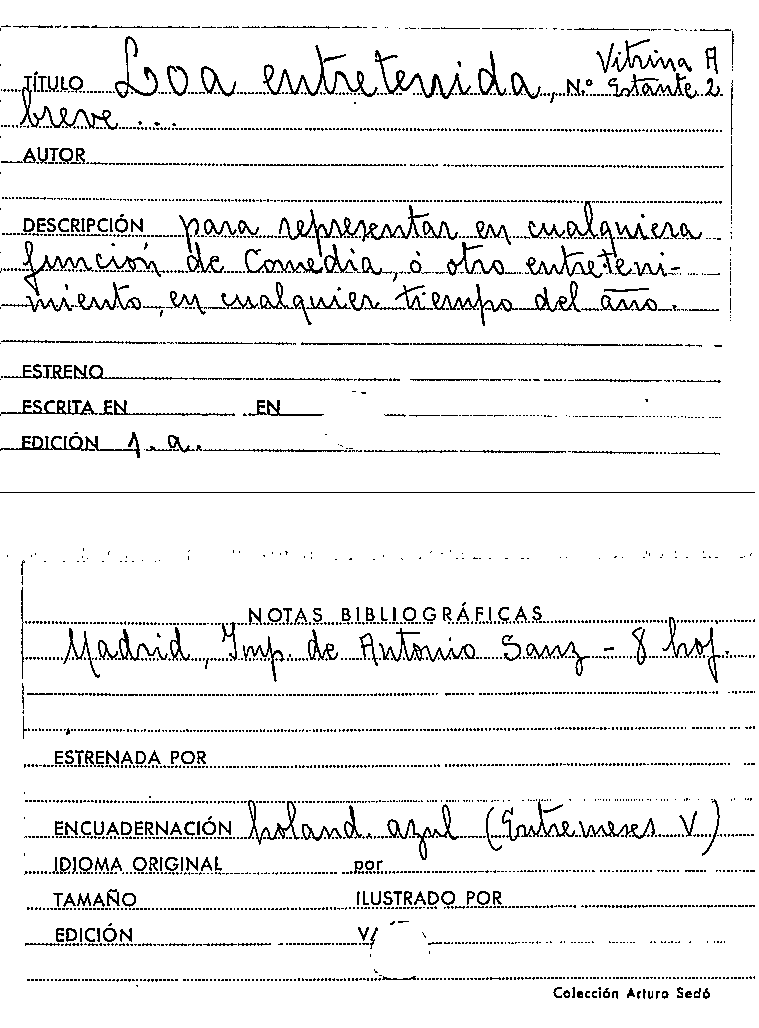 Vitrina A
TÍTULO Loa entretenida, N.º Estante 2
breve ...
AUTOR
DESCRIPCIÓN para representar en cualquiera
función de Comedia, ó otro entreteni-
miento, en cualquier tiempo del año.
ESTRENO
ESCRITA EN EN
EDICIÓN 1.a.
NOTAS BIBLIOGRÁFICAS
Madrid, Imp. de Antonio Sanz - 8 hoj.
ESTRENADA POR
ENCUADERNACIÓN holand. azul (Entremeses V)
IDIOMA ORIGINAL por
TAMAÑO ILUSTRADO POR
EDICIÓN V/
Colección Arturo Sedó